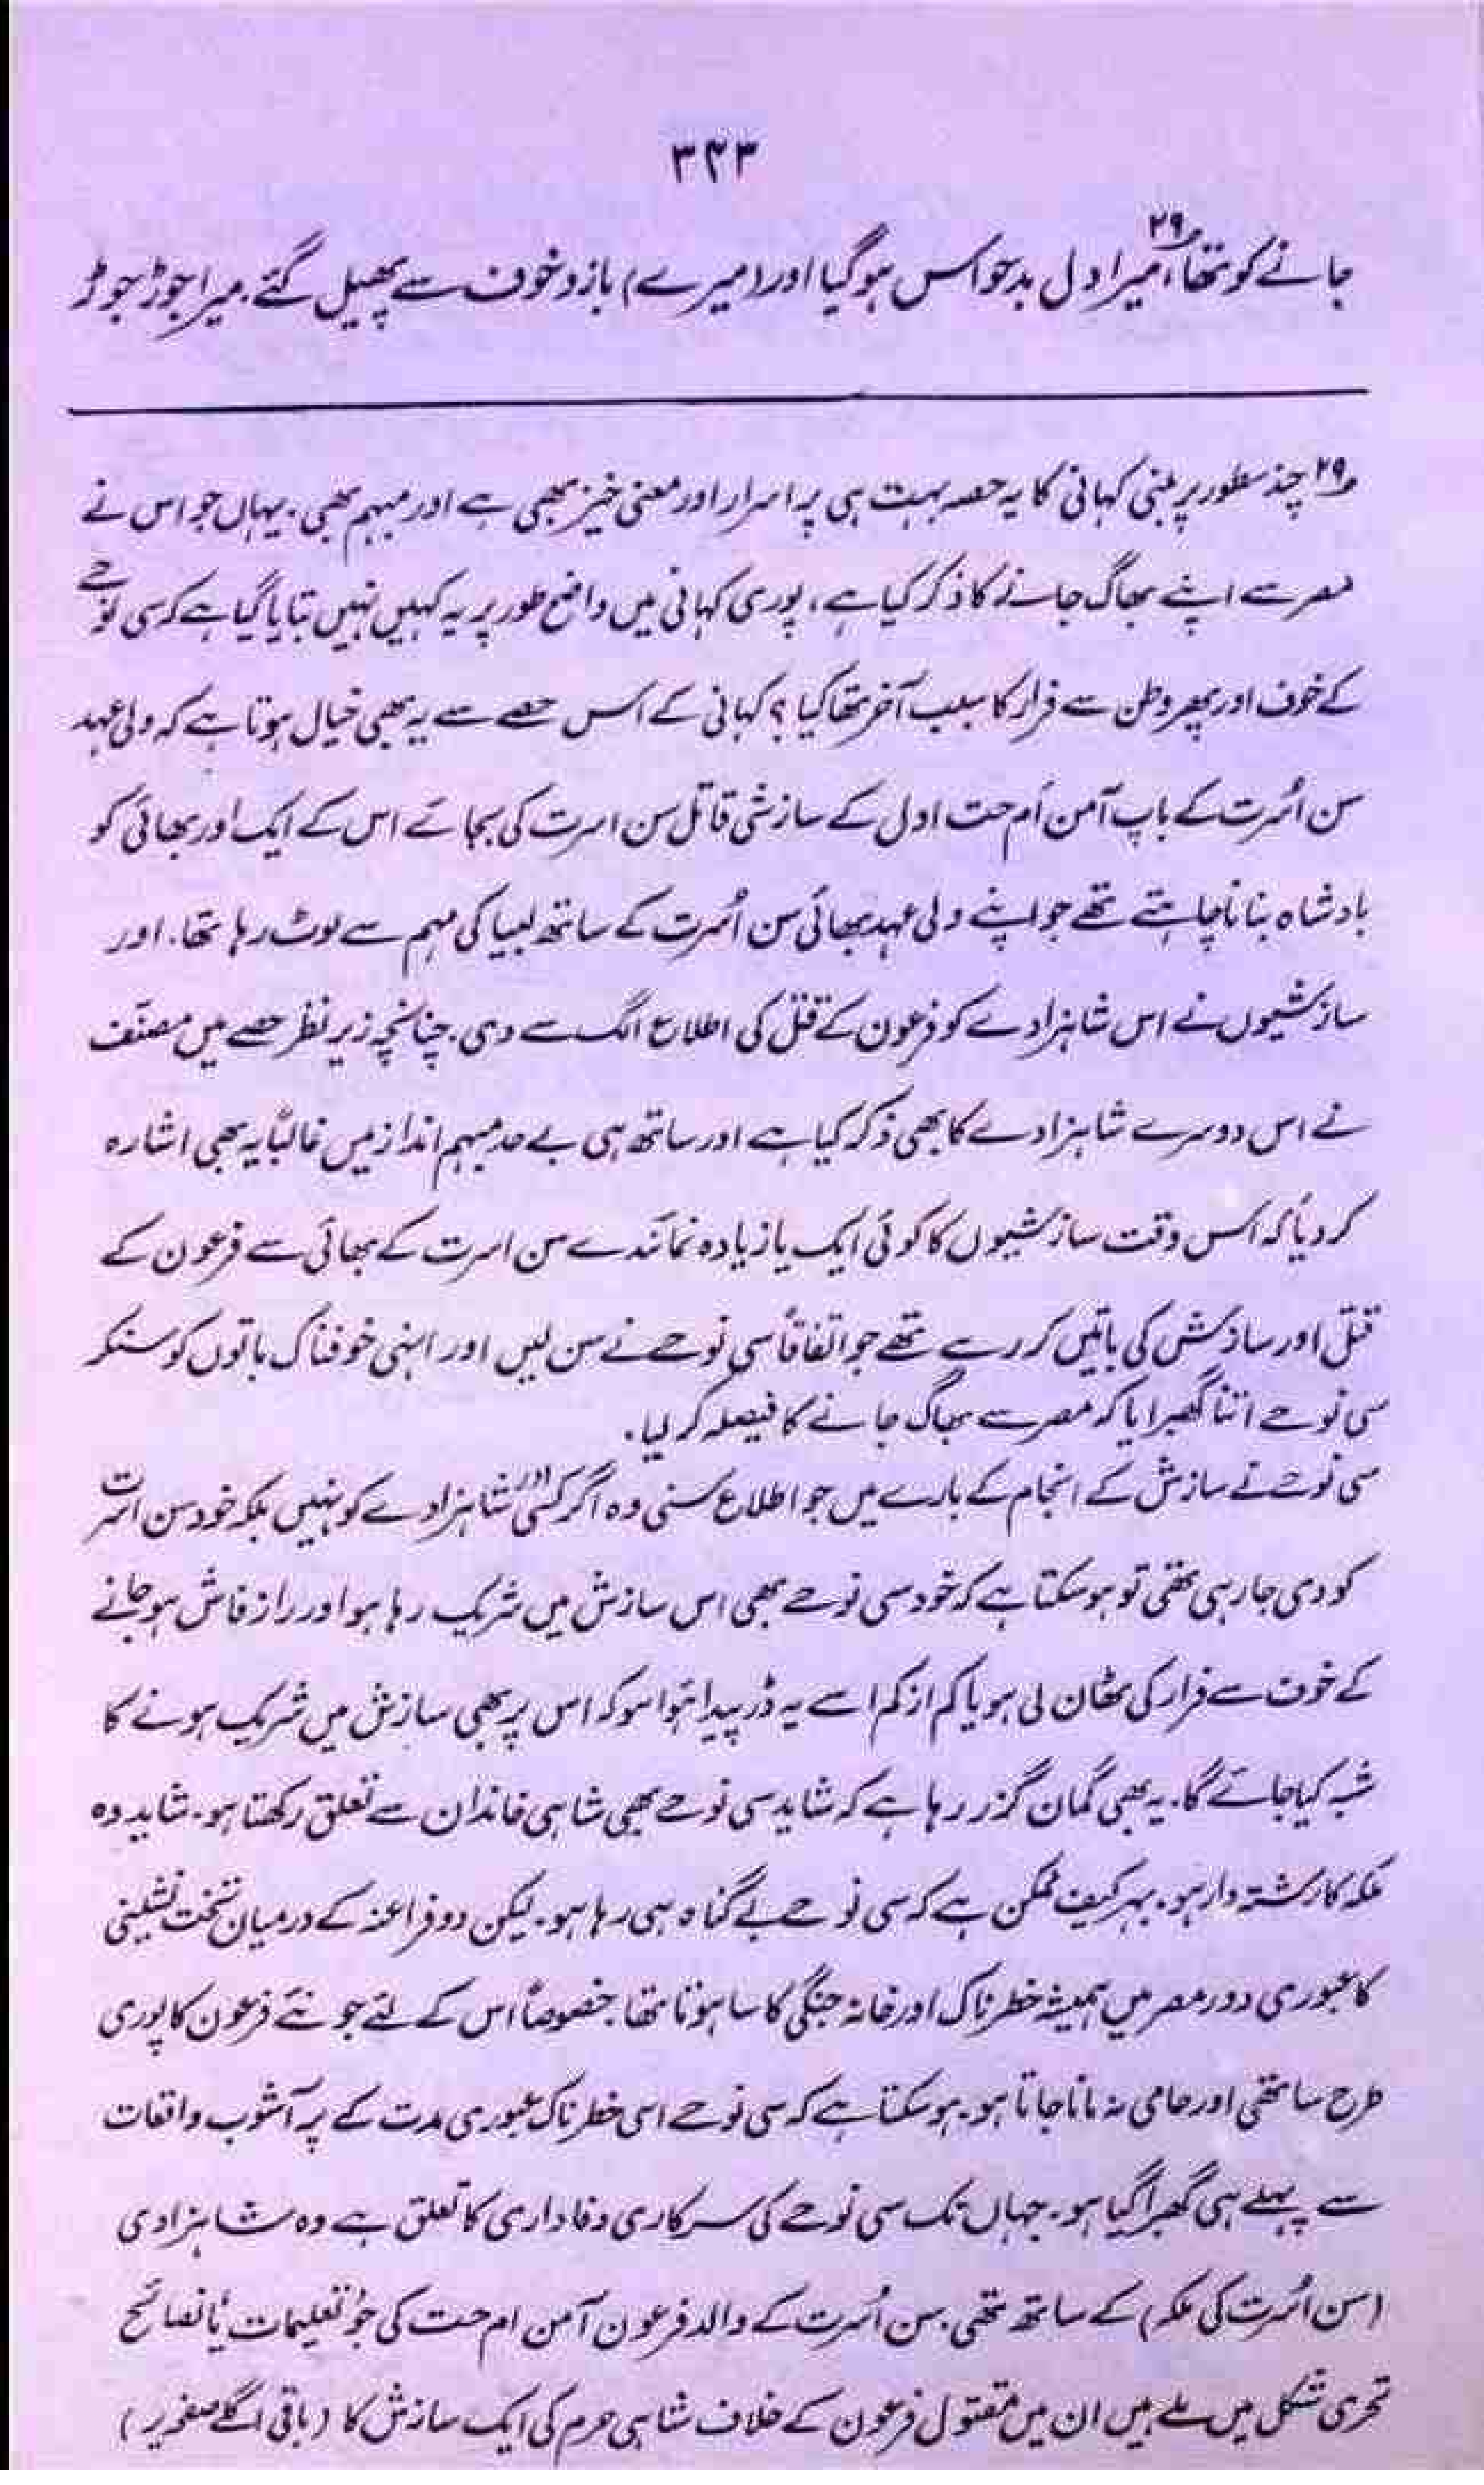 ۳۴۳
جانے کو تھا،۲۹ میرا دل بدحواس ہو گیا اور (میرے) بازو خوف سے پھیل گئے۔ میرا جوڑ جوڑ
۲۹؎ چند سطور پر مبنی کہانی کا یہ حصہ بہت ہی پراسرار اور معنی خیز بھی ہے اور مبہم بھی۔ یہاں جو اس نے
مصر سے اپنے بھاگ جانے کا ذکر کیا ہے، پوری کہانی میں واضح طور پر یہ کہیں نہیں بتایا گیا ہے کہ سی نوحے
کے خوف اور پھر وطن سے فرار کا سبب آخر تھا کیا؟ کہانی کے اس حصے سے یہ بھی خیال ہوتا ہے کہ ولی عہد
سن اُسرت کے باپ آمن اُم حت اول کے سازشی قاتل سن اسرت کی بجائے اس کے ایک اور بھائی کو
بادشاہ بنانا چاہتے تھے جو اپنے ولی عہد بھائی سن اُسرت کے ساتھ لیبیا کی مہم سے لوٹ رہا تھا۔ اور
سازشیوں نے اس شاہزادے کو فرعون کے قتل کی اطلاع الگ سے دی۔ چنانچہ زیر نظر حصے میں مصنف
نے اس دوسرے شاہزادے کا بھی ذکر کیا ہے اور ساتھ ہی بے حد مبہم انداز میں غالباً یہ بھی اشارہ
کر دیا کہ اس وقت سازشیوں کا کوئی ایک یا زیادہ نمائندے سن اسرت کے بھائی سے فرعون کے
قتل اور سازش کی باتیں کر رہے تھے جو اتفاقاً سی نوحے نے سن لیں اور انہی خوفناک باتوں کو سنکر
سی نوحے اتنا گھبرایا کہ مصر سے بھاگ جانے کا فیصلہ کر لیا۔
سی نوحے نے سازش کے انجام کے بارے میں جو اطلاع سنی وہ اگر کسی اور شاہزادے کو نہیں بلکہ خود سن اسرت
کو دی جا رہی تھی تو ہو سکتا ہے کہ خود سی نوحے بھی اس سازش میں شریک رہا ہو اور راز فاش ہو جانے
کے خوف سے فرار کی ٹھان لی ہو یا کم از کم اسے یہ ڈر پیدا ہوا ہو کہ اس پر بھی سازش میں شریک ہونے کا
شبہ کیا جائے گا۔ یہ بھی گمان گزر رہا ہے کہ شاید سی نوحے بھی شاہی خاندان سے تعلق رکھتا ہو۔ شاید وہ
ملکہ کا رشتہ دار ہو۔ بہر کیف ممکن ہے کہ سی نوحے بے گناہ ہی رہا ہو۔ لیکن دو فراعنہ کے درمیان تخت نشینی
کا عبوری دور مصر میں ہمیشہ خطرناک اور خانہ جنگی کا سا ہوتا تھا۔ خصوصاً اس کے لئے جو نئے فرعون کا پوری
طرح ساتھی اور حامی نہ مانا جاتا ہو۔ ہو سکتا ہے کہ سی نوحے اسی خطرناک عبوری مدت کے پر آشوب واقعات
سے پہلے ہی گھبرا گیا ہو۔ جہاں تک سی نوحے کی سرکاری وفاداری کا تعلق ہے وہ شاہزادی
(سن اُسرت کی ملکہ) کے ساتھ تھی۔ سن اُسرت کے والد فرعون آمن ام حت کی جو "تعلیمات" یا نصائح
تحری شکل میں ملے ہیں ان میں مقتول فرعون کے خلاف شاہی حرم کی ایک سازش کا (باقی اگلے صفحہ پر)